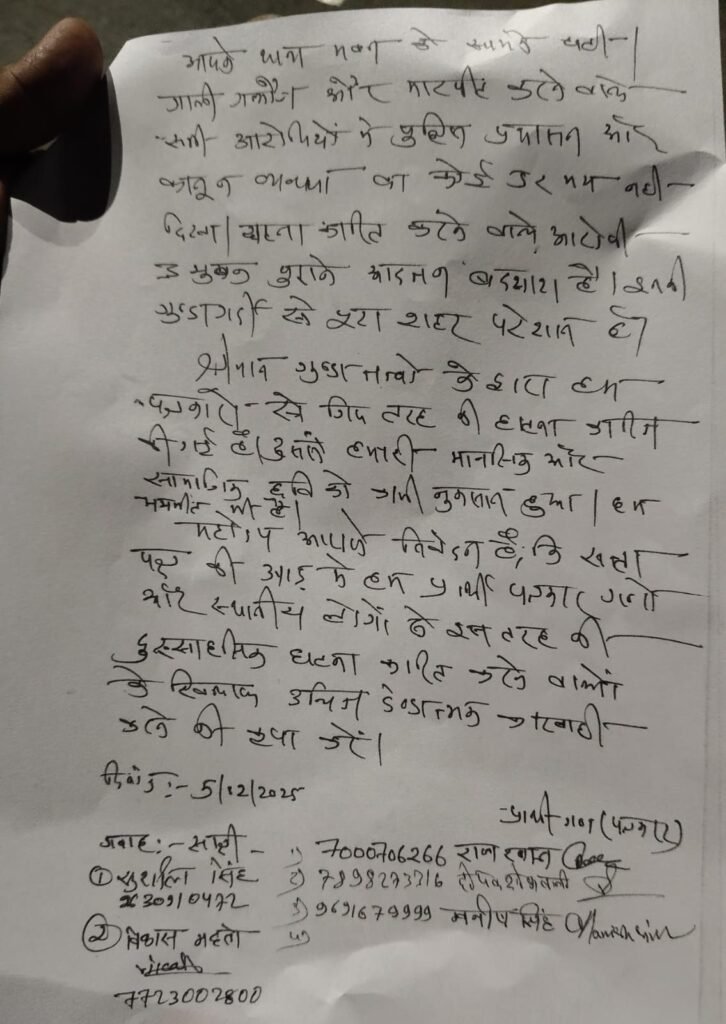 आपके थाना भवन के सामने घटी
गाली गलौज और मारपीट करने वाले
सभी आरोपियों में पुलिस प्रशासन और
कानून व्यवस्था का कोई डर भय नहीं
दिखा। घटना कारित करने वाले आरोपी
पुराने आदतन बदमाश है। इनकी
गुण्डागर्दी से पूरा शहर परेशान है।
श्रीमान गुण्डा तत्वो के द्वारा हम
पत्रकारो से जिस तरह की घटना कारित
की गई है। उससे हमारी मानसिक और
सामाजिक छवि को भारी नुकसान हुआ। हम
भयभीत भी है।
महोदय आपसे निवेदन है, कि सत्ता
पक्ष की आड़ मे हम प्रार्थी पत्रकार गणो
और स्थानीय लोगों से इस तरह की
दुस्साहसिक घटना कारित करने वालों
के खिलाफ उचित दण्डात्मक कारवाही
करने की कृपा करें।
दिनांक :- 5/12/2025
प्रार्थी गण (पत्रकार)
गवाह :- साक्षी -
1) 7000706266 राज
① सुशील सिंह
2) 7898273316 दीपक
3) 9691679999 मनीष सिंह
② विकास महतो
4)
7723002800